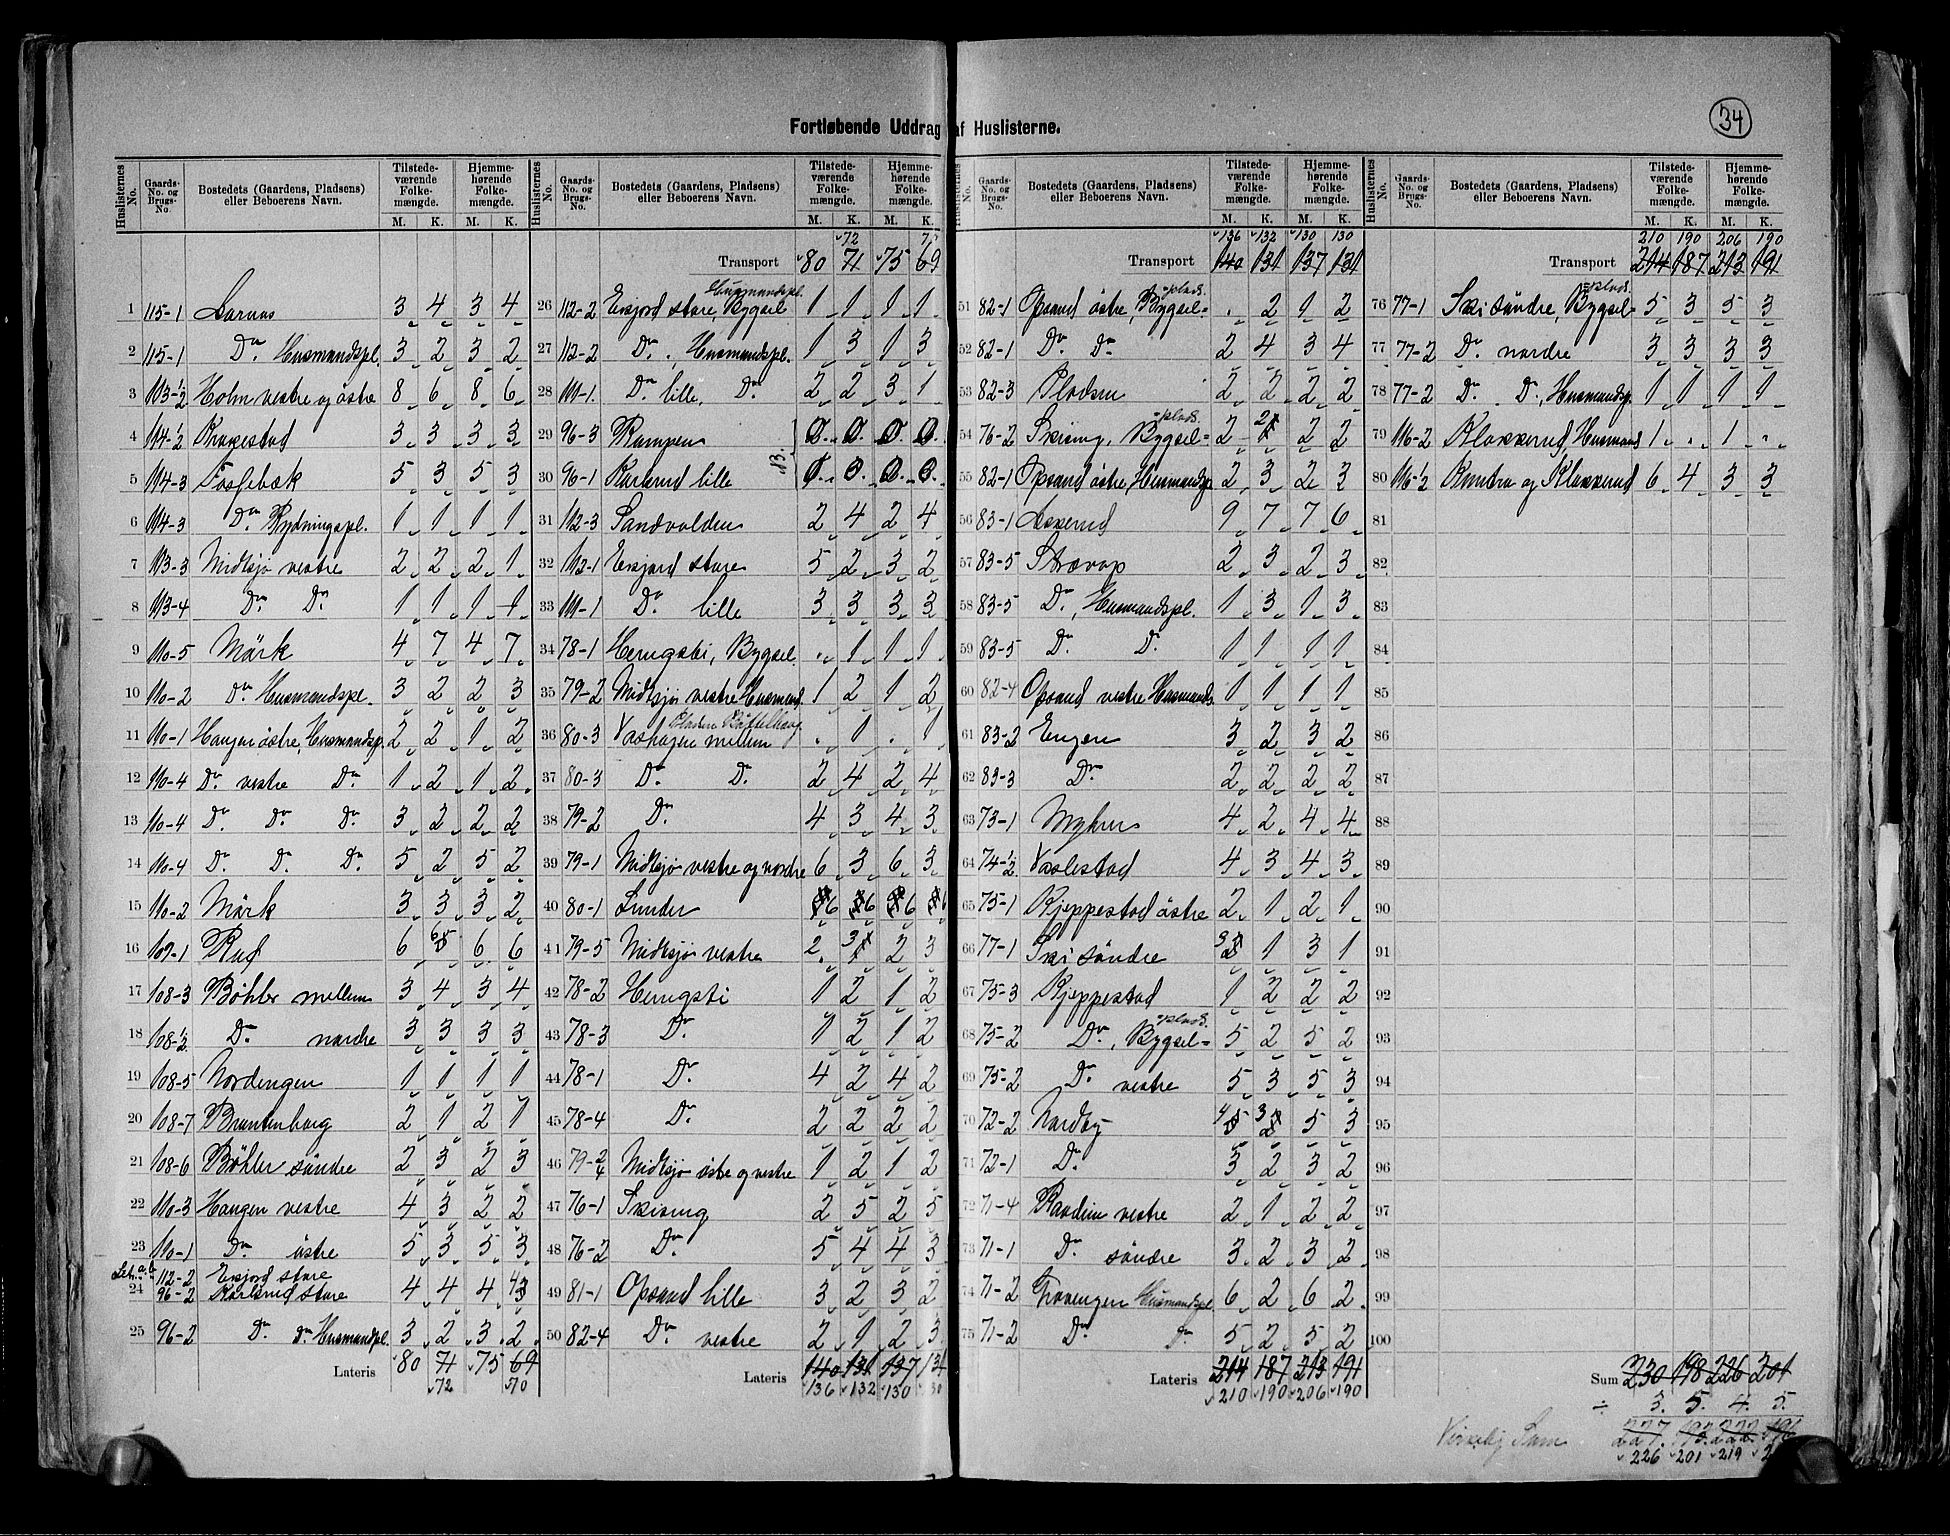 34
Fortløbende Uddrag af Huslisterne.
Huslisternes No. Gaards-No. og Brugs-No. Bostedets (Gaardens, Pladsens) eller Beboerens Navn. Tilstedeværende Folkemængde. M. K. Hjemmehørende Folkemængde. M. K.
1 115-1 3 4 3 4
2 115-1 Do Husmandspl. 3 2 3 2
3 113-1/2 Holm vestre og østre 8 6 8 6
4 114-1/2 3 3 3 3
5 114-3 Fossebæk 5 3 5 3
6 114-3 Do Rydningspl. 1 1 1 1
7 113-3 Midtsjø vestre 2 2 2 1
8 113-4 Do Do 1 1 1 1
9 110-5 Mörk 4 7 4 7
10 110-2 Do Husmandspl. 3 2 2 3
11 110-1 Haugen østre, Husmandspl. 2 2 1 2
12 110-4 Do vestre Do 1 2 1 2
13 110-4 Do Do Do 3 2 2 2
14 110-4 Do Do Do 5 2 5 2
15 110-2 Mörk 3 3 3 2
16 109-1 Rud 6 6 6 6
17 108-3 Bøhler mellem 3 4 3 4
18 108-1/2 Do nordre 3 3 3 3
19 108-5 Nordengen 1 1 1 1
20 108-7 2 1 2 1
21 108-6 Bøhler søndre 2 3 2 3
22 110-3 Haugen vestre 4 3 2 2
23 110-1 Do østre 5 3 5 3
24 112-2 Ersjord store
96-2 Karlsrud store 4 4 4 4
25 96-2 Do do Husmandspl. 3 2 3 2
Lateris 80 71 75 69
72 70
Huslisternes No. Gaards-No. og Brugs-No. Bostedets (Gaardens, Pladsens) eller Beboerens Navn. Tilstedeværende Folkemængde. M. K. Hjemmehørende Folkemængde. M. K.
72
Transport 80 71 75 69
Husmandspl.
26 112-2 Ersjord store Bygsel 1 1 1 1
27 112-2 Do, Husmandspl. 1 3 1 3
28 111-1 Do lille, Do 2 2 3 1
29 96-3 Rampen 0 0 0 0
30 96-1 Karlsrud lille 0 0 0
31 112-3 Sandvolden 2 4 2 4
32 112-1 Ersjord store 5 2 3 2
33 111-1 Do lille 3 3 3 3
34 78-1 Herugsbi, Bygsel . 1 1 1
35 79-2 Midtsjø vestre Husmand. 1 2 1 2
36 80-3 Vashagen mellem . 1 . 1
37 80-3 Do Do 2 4 2 4
38 79-2 Do 4 3 4 3
39 79-1 Midtsjø vestre og nordre 6 3 6 3
40 80-1 Lunder 6 6 6 6
41 79-5 Midtsjø vestre 2 3 2 3
42 78-2 Herugsbi 1 2 1 2
43 78-3 Do 1 2 1 2
44 78-1 Do 4 2 4 2
45 78-4 Do 2 2 2 2
46 79-2/4 Midtsjø østre og vestre 1 2 1 2
47 76-1 Skising 2 5 2 5
48 76-2 Do 5 4 4 3
49 81-1 Opsand lille 3 2 3 2
50 82-4 Do vestre 2 1 2 3
Lateris 140 131 137 131
136 132 130
Huslisternes No. Gaards-No. og Brugs-No. Bostedets (Gaardens, Pladsens) eller Beboerens Navn. Tilstedeværende Folkemængde. M. K. Hjemmehørende Folkemængde. M. K.
136 132 130 130
Transport 140 131 137 131
51 82-1 Opsand østre, Bygsel=plads. . 2 1 2
52 82-1 Do Do 2 4 3 4
53 82-3 Pladsen 2 2 2 2
54 76-2 Skising, Bygsel=plads. 2 2 2 2
55 82-1 Opsand østre, Husmandspl 2 3 2 3
56 83-1 Askerud 9 7 7 6
57 83-5 2 3 2 3
58 83-5 Do, Husmandspl. 1 3 1 3
59 83-5 Do Do 1 1 1 1
60 82-4 Opsand vestre Husmands 1 1 1 1
61 83-2 Engen 3 2 3 2
62 83-3 Do 2 2 2 2
63 73-1 4 2 4 4
64 74-1/2 Vaalestad 4 3 4 3
65 75-1 Kjeppestad østre 2 1 2 1
66 77-1 Ski søndre 3 1 3 1
67 75-3 Kjeppestad 1 2 2 2
68 75-2 Do, Bygsel=plads. 5 2 5 2
69 75-2 Do vestre 5 3 5 3
70 72-2 Nordby 4 3 5 3
71 72-1 Do 3 2 3 2
72 71-4 vestre 2 1 2 2
73 71-1 Do søndre 3 2 3 2
74 71-2 Husmandspl 6 2 6 2
75 71-2 Do Do 5 2 5 2
Lateris 214 187 213 191
210 190 206 190
Huslisternes No. Gaards-No. og Brugs-No. Bostedets (Gaardens, Pladsens) eller Beboerens Navn. Tilstedeværende Folkemængde. M. K. Hjemmehørende Folkemængde. M. K.
210 190 206 190
Transport 214 187 213 191
76 77-1 Ski søndre, Bygsel=plads. 5 3 5 3
77 77-2 Do nordre 3 3 3 3
78 77-2 Do Do, Husmandspl. 1 1 1 1
79 116-2 Klakkerud, Husmand 1 . 1 .
80 116-1/2 og Klakkerud 6 4 3 3
81
82
83
84
85
86
87
88
89
90
91
92
93
94
95
96
97
98
99
100
Sum 230 198 226 201
÷ 3. 5. 4. 5.
Virkelig Sum 227. 193 222. 196
226 201 219